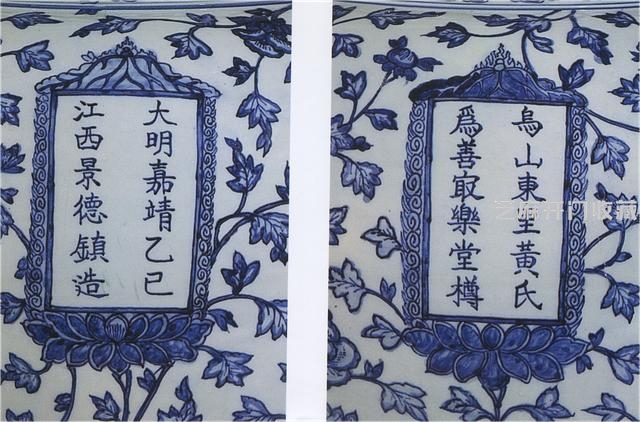 大明嘉靖乙巳
江西景德鎮造
烏山東生黃氏
爲善冣樂堂樽
芝麻开门收藏